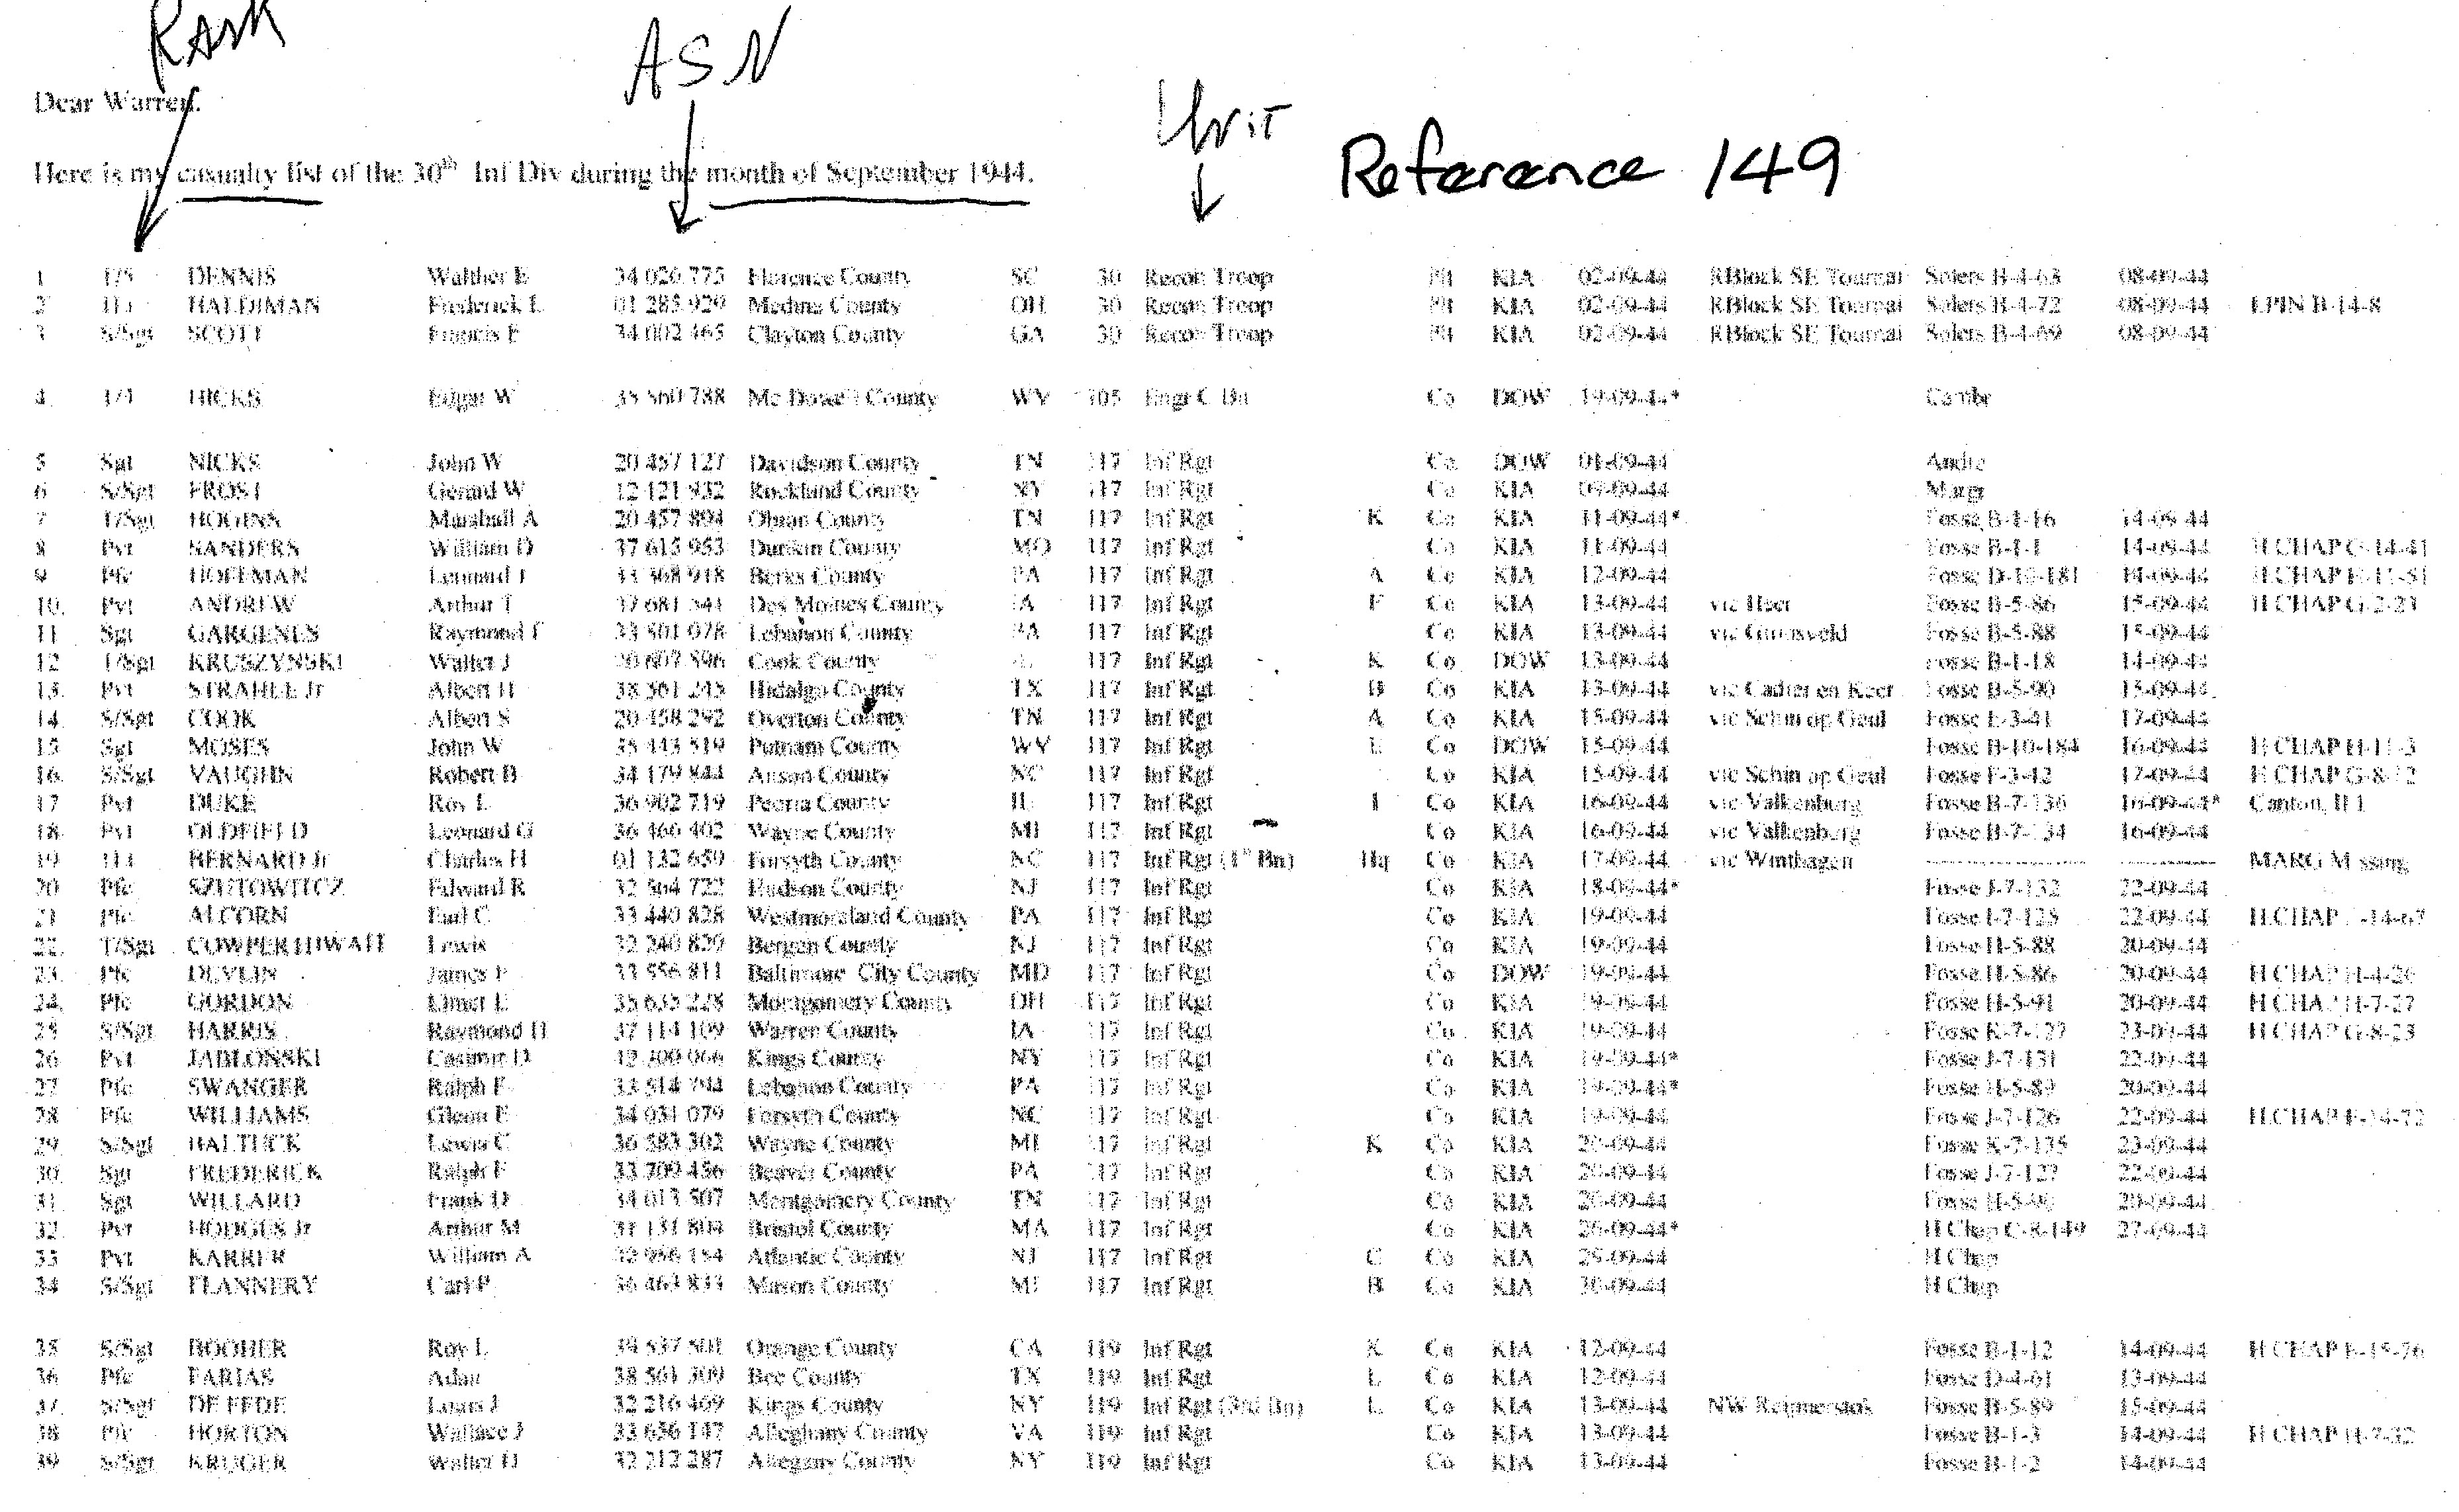 Rank
ASN
Unit
Dear Warren.
Reference 149
Here is my casualty list of the 30th Inf Div during the month of September 1944.
1 T/5 DENNIS Walther E 34 026 775 Florence County SC 30 Recon Troop Plt KIA 02-09-44 RBlock SE Tournai Solers B-4-63 08-09-44
2 HALDIMAN Frederick L 01 285 929 Medina County OH 30 Recon Troop Plt KIA 02-09-44 RBlock SE Tournai Solers B-4-72 08-09-44 EPIN B-14-8
3 S/Sgt SCOTT Francis E 34 002 465 Clayton County GA 30 Recon Troop Plt KIA 02-09-44 RBlock SE Tournai Solers B-4-69 08-09-44
4. T/4 HICKS Edgar W 35 560 788 Mc Dowell County WV 105 Engr C Bn Co DOW 19-09-44* Cambr
5 Sgt NICKS John W 20 457 127 Davidson County TN 117 Inf Rgt Co DOW 01-09-44 Andle
6 S/Sgt FROST Gerard W 12 121 932 Rockland County NY 117 Inf Rgt Co KIA 09-09-44 Margr
7 T/Sgt HOGINS Marshall A 20 457 894 Obion County TN 117 Inf Rgt K Co KIA 11-09-44* Fosse B-1-16 14-09-44
8 Pvt SANDERS William D 37 615 953 Dunklin County MO 117 Inf Rgt Co KIA 11-09-44 Fosse B-1-1 14-09-44 H CHAP C-14-41
9 Pfc HOFFMAN Leonard J 33 368 918 Berks County PA 117 Inf Rgt A Co KIA 12-09-44 Fosse D-10-181 H CHAP
10. Pvt ANDREW Arthur T 37 681 541 Des Moines County IA 117 Inf Rgt F Co KIA 13-09-44 vic Heer Fosse B-5-86 15-09-44 H CHAP G-2-23
11 Sgt GARGENUS Raymond 33 501 078 Lebanon County PA 117 Inf Rgt Co KIA 13-09-44 vic Gronsveld Fosse B-5-88 15-09-44
12 T/Sgt KRUSZYNSKI Walter J 20 607 596 Cook County 117 Inf Rgt K Co DOW 13-09-44 Fosse B-1-18 14-09-44
13. Pvt STRAHLE Jr Albert H 38 561 245 Hidalgo County TX 117 Inf Rgt B Co KIA 13-09-44 vic Cadier en Keer Fosse B-5-90 15-09-44
14. S/Sgt COOK Albert S 20 458 292 Overton County TN 117 Inf Rgt A Co KIA 15-09-44 vic Schin op Geul Fosse E-3-41 17-09-44
15 Sgt MOSES John W 35 443 519 Putnam County WV 117 Inf Rgt Co DOW 15-09-44 Fosse B-10-184 16-09-44 H CHAP H-11-3
16. S/Sgt VAUGHN Robert B 34 179 844 Anson County NC 117 Inf Rgt Co KIA 15-09-44 vic Schin op Geul Fosse F-3-42 17-09-44 H CHAP G-8-12
17 Pvt DUKE Roy L 36 902 719 Peoria County IL 117 Inf Rgt I Co KIA 16-09-44 vic Valkenburg Fosse B-7-136 16-09-44* Canton, Ill
18. Pvt OLDFIELD Leonard G 36 466 402 Wayne County MI 117 Inf Rgt Co KIA 16-09-44 vic Valkenburg Fosse B-7-134 16-09-44
19 BERNARD Jr Charles H 01 132 659 Forsyth County NC 117 Inf Rgt (1st Bn) Hq Co KIA 17-09-44 vic Winthagen MARG Missing
20 Pfc SZUTOWITCZ Edward R 32 504 722 Hudson County NJ 117 Inf Rgt Co KIA 18-09-44* Fosse J-7-132 22-09-44
21 Pfc ALCORN Earl C 33 440 828 Westmoraland County PA 117 Inf Rgt Co KIA 19-09-44 Fosse J-7-125 22-09-44 H CHAP
22. T/Sgt COWPERTHWAIT Lewis 32 240 829 Bergen County NJ 117 Inf Rgt Co KIA 19-09-44 Fosse H-5-88 20-09-44
23. Pfc DEVLIN James P 33 556 811 Baltimore City County MD 117 Inf Rgt Co DOW 19-09-44 Fosse H-5-86 20-09-44 H CHAP H-4-26
24. Pfc GORDON Elmer E 35 635 228 Montgomery County OH 117 Inf Rgt Co KIA 19-09-44 Fosse H-5-91 20-09-44 H CHAP H-7-27
25 S/Sgt HARRIS Raymond H 37 114 109 Warren County IA 117 Inf Rgt Co KIA 19-09-44 Fosse K-7-127 23-09-44 H CHAP G-8-23
26 Pvt JABLONSKI Casimir D 42 000 066 Kings County NY 117 Inf Rgt Co KIA 19-09-44* Fosse J-7-131 22-09-44
27 Pfc SWANGER Ralph F 33 514 794 Lebanon County PA 117 Inf Rgt Co KIA 19-09-44* Fosse H-5-89 20-09-44
28 Pfc WILLIAMS Glenn F 34 031 079 Forsyth County NC 117 Inf Rgt Co KIA 19-09-44 Fosse J-7-126 22-09-44 H CHAP F-14-72
29 S/Sgt HALTUCK Lewis C 36 583 302 Wayne County MI 117 Inf Rgt K Co KIA 20-09-44 Fosse K-7-135 23-09-44
30. Sgt FREDERICK Ralph F 33 709 456 Beaver County PA 117 Inf Rgt Co KIA 20-09-44 Fosse J-7-127 22-09-44
31. Sgt WILLARD Frank D 34 013 507 Montgomery County TN 117 Inf Rgt Co KIA 20-09-44 Fosse H-5-90 20-09-44
32. Pvt HODGES Jr Arthur M 31 131 804 Bristol County MA 117 Inf Rgt Co KIA 26-09-44* H Chap C-8-149 27-09-44
33 Pvt KARRER William A 32 956 154 Atlantic County NJ 117 Inf Rgt C Co KIA 29-09-44 H Chap
34 S/Sgt FLANNERY Carl P 36 463 833 Mason County MI 117 Inf Rgt B Co KIA 30-09-44 H Chap
35 S/Sgt BOOHER Roy L 39 537 501 Orange County CA 119 Inf Rgt K Co KIA 12-09-44 Fosse B-1-12 14-09-44 H CHAP E-15-76
36 Pfc FARIAS Adan 38 561 309 Bee County TX 119 Inf Rgt L Co KIA 12-09-44 Fosse D-4-61 13-09-44
37. S/Sgt DE FEDE Louis J 32 216 469 Kings County NY 119 Inf Rgt (3rd Bn) L Co KIA 13-09-44 NW Reijmerstok Fosse B-5-89 15-09-44
38 Pfc HORTON Wallace J 33 656 147 Alleghany County VA 119 Inf Rgt Co KIA 13-09-44 Fosse B-1-3 14-09-44 H CHAP H-7-32
39 S/Sgt KRUGER Walter D 32 212 287 Allegany County NY 119 Inf Rgt Co KIA 13-09-44 Fosse B-1-2 14-09-44